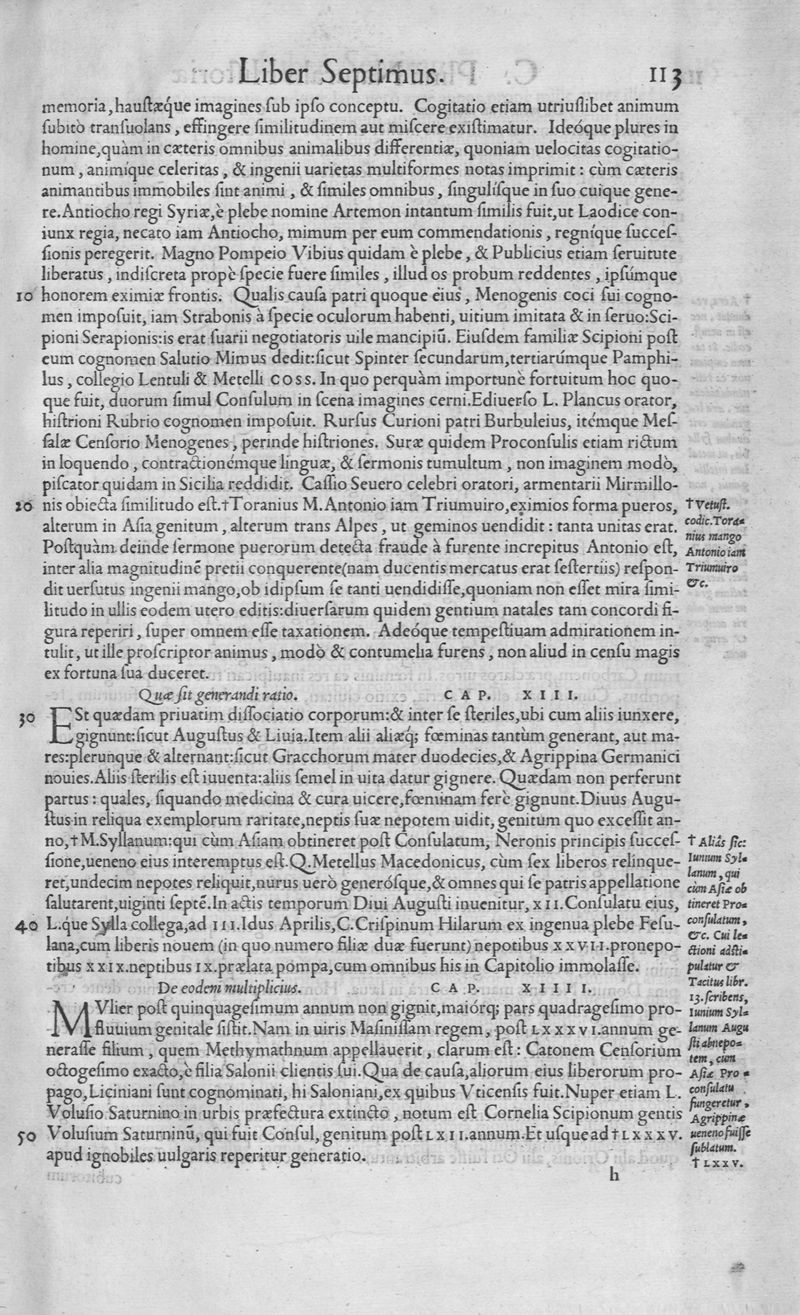 Liber Septimus. 113
memoria, hauſtæq́ue imagines ſub ipſo conceptu. Cogitatio etiam utriuſlibet animum
ſubitò tranſuolans, effingere ſimilitudinem aut miſcere exiſtimatur. Ideóque plures in
homine, quàm in cæteris omnibus animalibus differentiæ, quoniam uelocitas cogitatio-
num, animíque celeritas, & ingenii uarietas multiformes notas imprimit: cùm cæteris
animantibus immobiles ſint animi, & ſimiles omnibus, ſinguliſque in ſuo cuique gene-
re. Antiocho regi Syriæ, è plebe nomine Artemon intantum ſimilis fuit, ut Laodice con-
iunx regia, necato iam Antiocho, mimum per eum commendationis, regníque ſucceſ-
ſionis peregerit. Magno Pompeio Vibius quidam è plebe, & Publicius etiam ſeruitute
liberatus, indiſcreta propè ſpecie fuere ſimiles, illud os probum reddentes, ipſúmque
10 honorem eximiæ frontis. Qualis cauſa patri quoque eius, Menogenis coci ſui cogno-
men impoſuit, iam Strabonis à ſpecie oculorum habenti, uitium imitata & in ſeruo: Sci-
pioni Serapionis: is erat ſuarii negotiatoris uile mancipiū. Eiuſdem familiæ Scipioni poſt
eum cognomen Salutio Mimus dedit: ſicut Spinter ſecundarum, tertiarúmque Pamphi-
lus, collegio Lentuli & Metelli COSS. In quo perquàm importunè fortuitum hoc quo-
que fuit, duorum ſimul Conſulum in ſcena imagines cerni. Ediuerſo L. Plancus orator,
hiſtrioni Rubrio cognomen impoſuit. Rurſus Curioni patri Burbuleius, itémque Meſ-
ſalæ Cenſorio Menogenes, perinde hiſtriones. Suræ quidem Proconſulis etiam rictum
in loquendo, contractionémque linguæ, & ſermonis tumultum, non imaginem modò,
piſcator quidam in Sicilia reddidit. Caſſio Seuero celebri oratori, armentarii Mirmillo-
20 nis obiecta ſimilitudo eſt. †Toranius M. Antonio iam Triumuiro, eximios forma pueros,
alterum in Aſia genitum, alterum trans Alpes, ut geminos uendidit: tanta unitas erat.
Poſtquàm deinde ſermone puerorum detecta fraude à furente increpitus Antonio eſt,
inter alia magnitudinē pretii conquerente (nam ducentis mercatus erat ſeſtertiis) reſpon-
dit uerſutus ingenii mango, ob idipſum ſe tanti uendidiſſe, quoniam non eſſet mira ſimi-
litudo in ullis eodem utero editis: diuerſarum quidem gentium natales tam concordi fi-
gura reperiri, ſuper omnem eſſe taxationem. Adeóque tempeſtiuam admirationem in-
tulit, ut ille proſcriptor animus, modò & contumelia furens, non aliud in cenſu magis
ex fortuna ſua duceret.
† Vetuſt.
codic. Tora-
nius mango
Antonio iam
Triumuiro
&c.
Quæ ſit generandi ratio. CAP. XIII.
30 ESt quædam priuatim diſſociatio corporum: & inter ſe ſteriles, ubi cum aliis iunxere,
gignunt: ſicut Auguſtus & Liuia. Item alii aliæq; fœminas tantùm generant, aut ma-
res: plerunque & alternant: ſicut Gracchorum mater duodecies, & Agrippina Germanici
nouies. Aliis ſterilis eſt iuuenta: aliis ſemel in uita datur gignere. Quædam non perferunt
partus: quales, ſiquando medicina & cura uicere, fœminam ferè gignunt. Diuus Augu-
ſtus in reliqua exemplorum raritate, neptis ſuæ nepotem uidit, genitum quo exceſſit an-
no, †M. Syllanum: qui cùm Aſiam obtineret poſt Conſulatum, Neronis principis ſucceſ-
ſione, ueneno eius interemptus eſt. Q. Metellus Macedonicus, cùm ſex liberos relinque-
ret, undecim nepotes reliquit, nurus uerò generóſque, & omnes qui ſe patris appellatione
ſalutarent, uiginti ſeptē. In actis temporum Diui Auguſti inuenitur, XII. Conſulatu eius,
40 L. que Sylla collega, ad III. Idus Aprilis, C. Criſpinum Hilarum ex ingenua plebe Feſu-
lana, cum liberis nouem (in quo numero filiæ duæ fuerunt) nepotibus XXVII. pronepo-
tibus XXIX. neptibus IX. prælata pompa, cum omnibus his in Capitolio immolaſſe.
De eodem multiplicius. CAP. XIIII.
MVlier poſt quinquageſimum annum non gignit, maiórq; pars quadrageſimo pro-
fluuium genitale ſiſtit. Nam in uiris Maſiniſſam regem, poſt LXXXVI. annum ge-
neraſſe filium, quem Methymathnum appellauerit, clarum eſt: Catonem Cenſorium
octogeſimo exacto, è filia Salonii clientis ſui. Qua de cauſa, aliorum eius liberorum pro-
pago, Liciniani ſunt cognominati, hi Saloniani, ex quibus Vticenſis fuit. Nuper etiam L.
Voluſio Saturnino in urbis præfectura extincto, notum eſt Cornelia Scipionum gentis
50 Voluſium Saturninū, qui fuit Conſul, genitum poſt LXII. annum. Et uſque ad †LXXXV.
apud ignobiles uulgaris reperitur generatio.
† Aliàs ſic:
Iunium Syl-
lanum, qui
cùm Aſiæ ob
tineret Pro-
conſulatum,
&c. Cui le-
ctioni adſti-
pulatur &
Tacitus libr.
13. ſcribens,
Iunium Syl-
lanum Augu
ſti abnepo-
tem, cum
Aſiæ Pro-
conſulatu
fungeretur,
Agrippinæ
ueneno fuiſſe
ſublatum.
† LXXV.
h